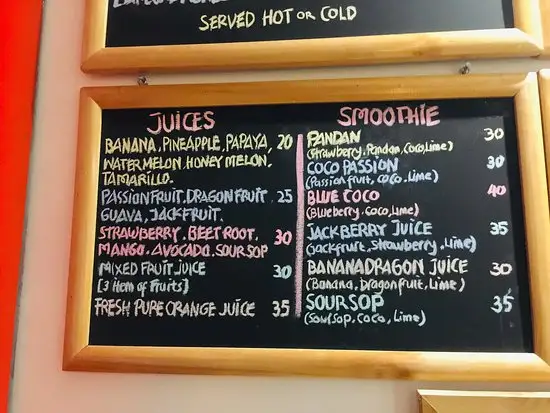 SERVED HOT OR COLD
JUICES
BANANA, PINEAPPLE, PAPAYA, 20
WATERMELON, HONEY MELON,
TAMARILLO.
PASSION FRUIT, DRAGON FRUIT 25
GUAVA, JACKFRUIT.
STRAWBERRY, BEET ROOT, 30
MANGO, AVOCADO, SOURSOP
MIXED FRUIT JUICE 30
[3 Item of Fruits]
FRESH PURE ORANGE JUICE 35
SMOOTHIE
PANDAN 30
(Strawberry, Pandan, Coco, Lime)
COCO PASSION 30
(Passion fruit, Coco, Lime)
BLUE COCO 40
(Blueberry, Coco, Lime)
JACKBERRY JUICE 35
(Jackfruit, Strawberry, Lime)
BANANADRAGON JUICE 30
(Banana, Dragonfruit, Lime)
SOURSOP 35
(Soursop, Coco, Lime)